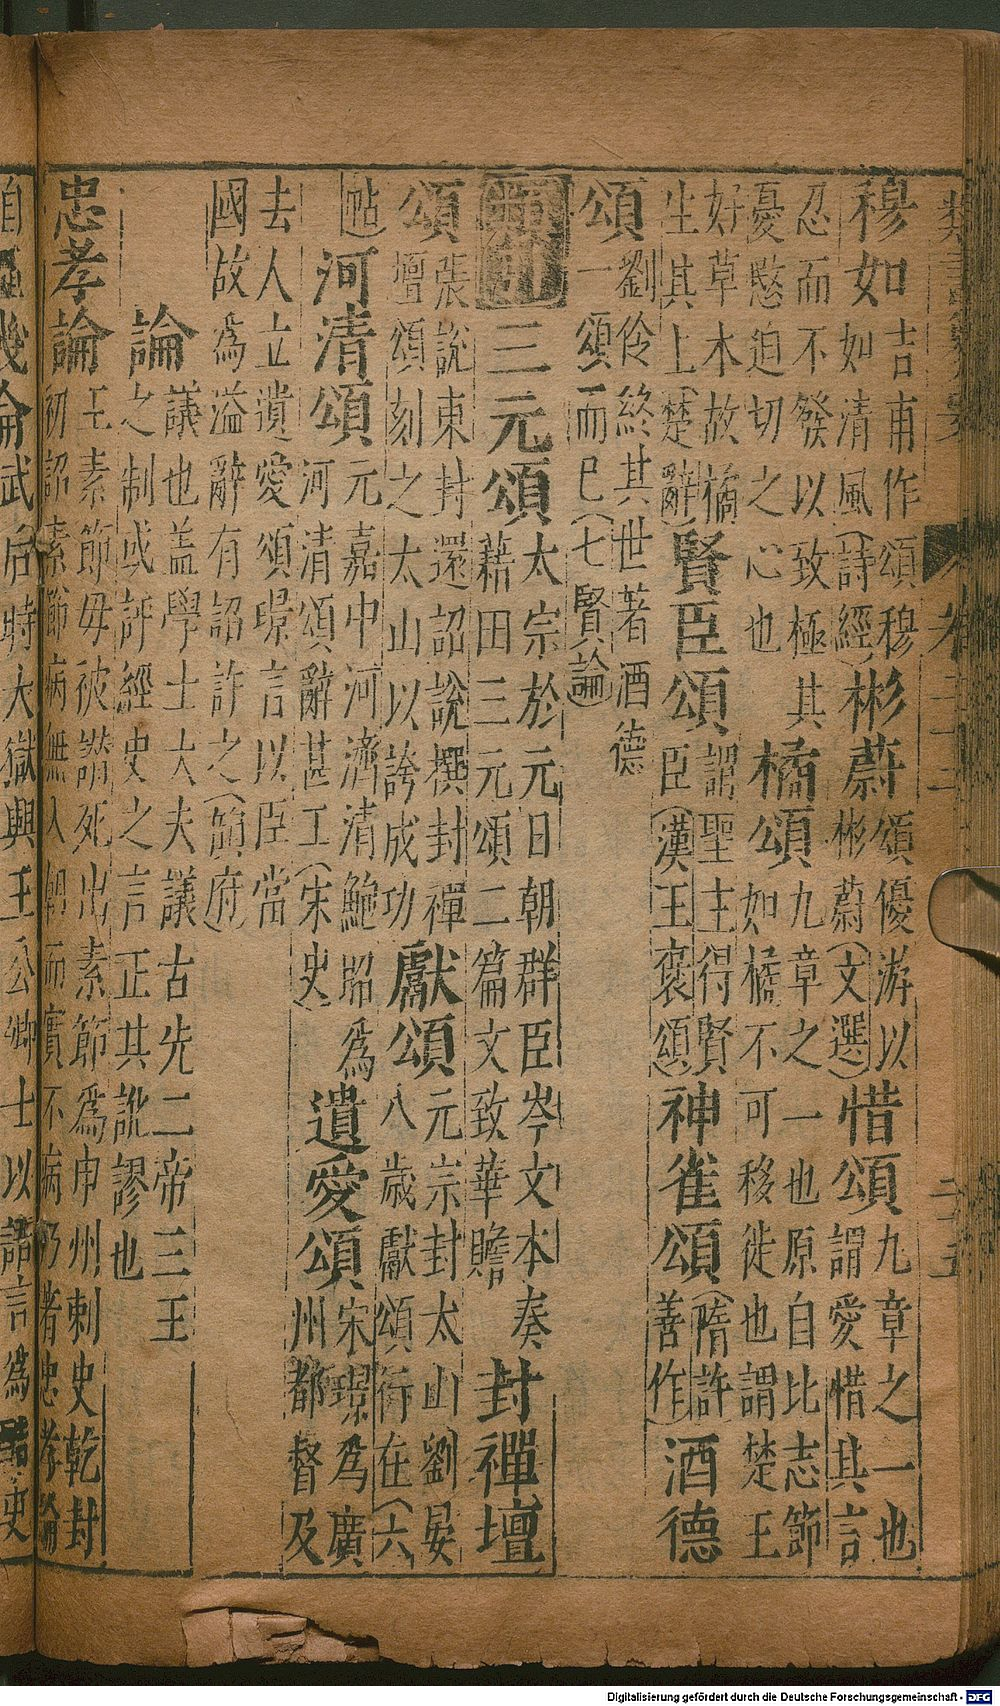 穆如吉甫作頌穆
如清風(詩經)彬蔚頌優游以
彬蔚(文選)惜頌九章之一也
謂愛惜其言
忍而不發以致極其
憂愍迫切之心也橘頌九章之一也原自比志節
如橘不可移徙也謂楚王
好草木故橘
生其上(楚辭)賢臣頌謂聖主得賢
臣(漢王褒頌)神雀頌(隋許
善作)酒德
頌劉伶終其世著酒德
一頌而已(七賢論)
三元頌太宗於元日朝群臣岑文本奏
藉田三元頌二篇文致華贍封禪壇
頌張說東封還詔說撰封禪
壇頌刻之太山以誇成功獻頌元宗封太山劉晏
八歲獻頌行在(六
帖)河清頌元嘉中河濟清鮑昭為
河清頌辭甚工(宋史)遺愛頌宋璟為廣
州都督及
去人立遺愛頌璟言以臣當
國故為溢辭有詔許之(韻府)
論議也盖學士大夫議古先二帝三王
之制或評經史之言正其訛謬也
忠孝論王素節母被譖死出素節為申州刺史乾封
初詔素節病無入朝而實不病乃著忠孝論
武后時大獄興王公卿士以語言為